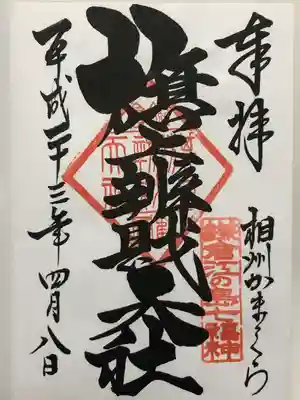 奉拝
相州かまくら
鎌倉江の島七福神
旗上辨財天社
平成二十三年四月八日